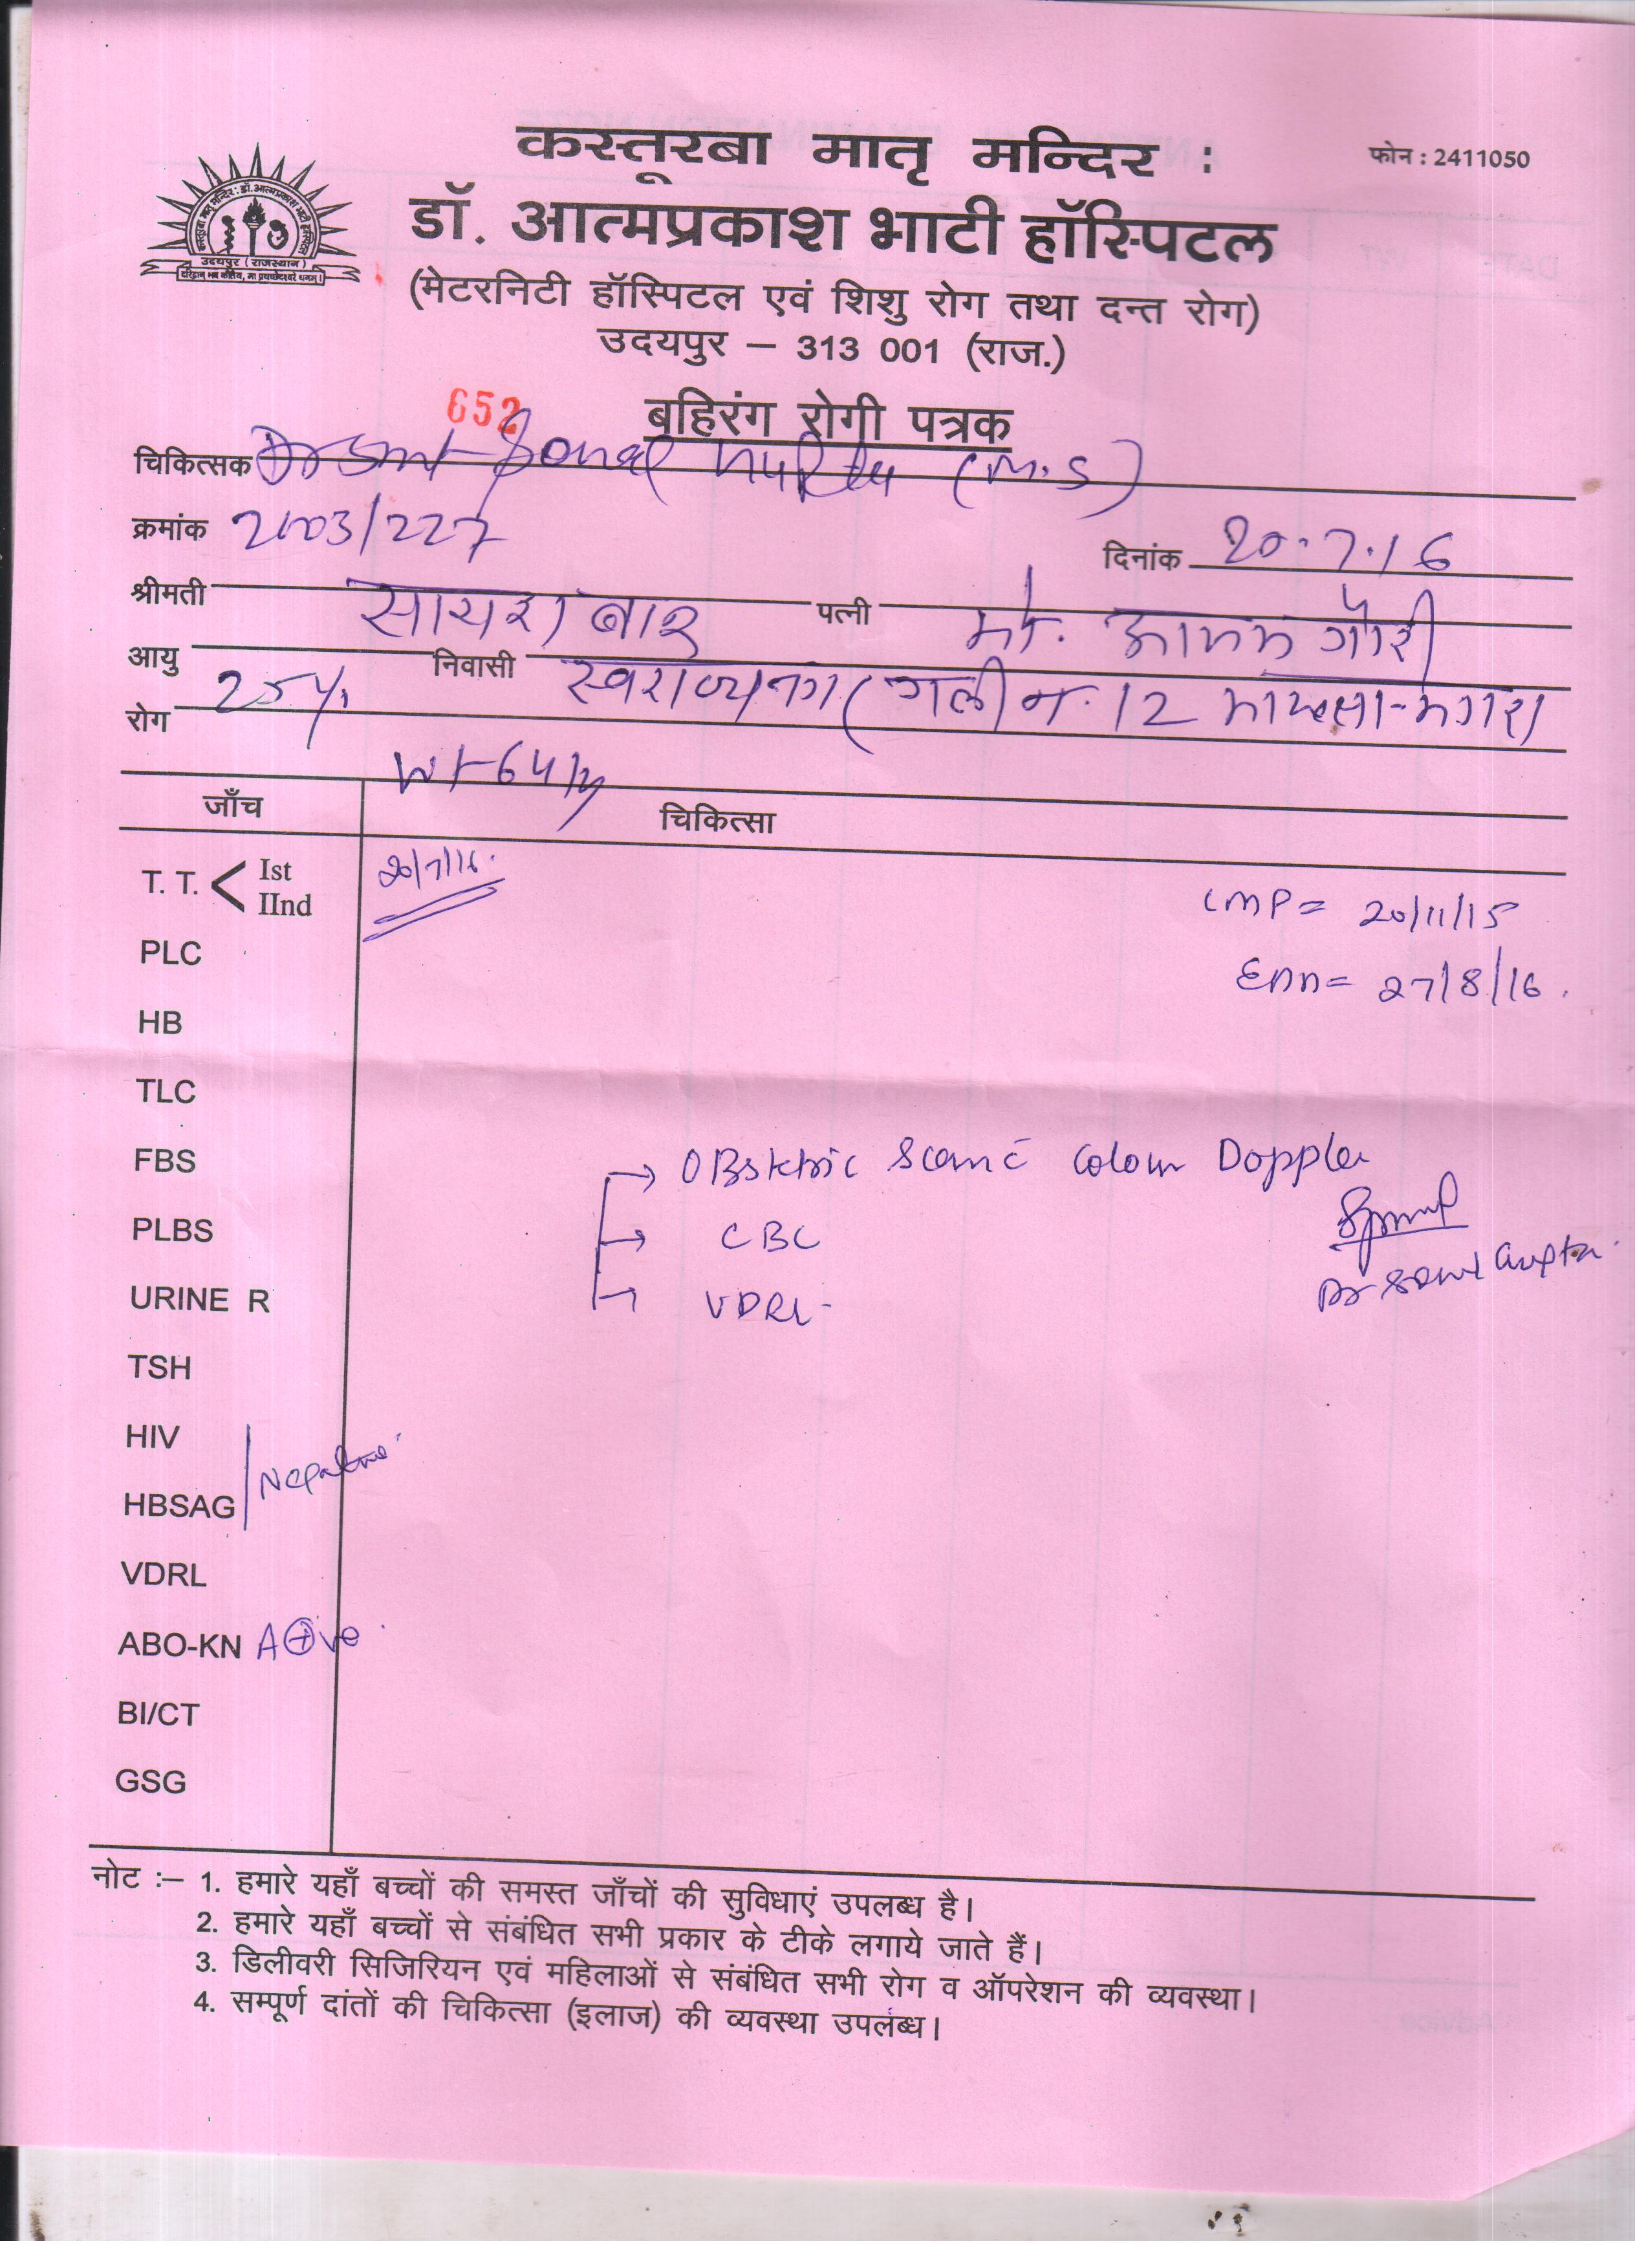 कस्तूरबा मातृ मन्दिर :
फोन : 2411050
डॉ. आत्मप्रकाश भाटी हॉस्पिटल
उदयपुर (राजस्थान)
(मेटरनिटी हॉस्पिटल एवं शिशु रोग तथा दन्त रोग)
उदयपुर – 313 001 (राज.)
652
बहिरंग रोगी पत्रक
चिकित्सक Dr Smt Sonal Gupta (M.S)
क्रमांक 2003/227
दिनांक 20.7.16
श्रीमती सायरा बानु पत्नी मो. गौरी
आयु 25 y. निवासी स्वराज्यनगर गली न. 12
रोग
Wt - 64 kg
जाँच चिकित्सा
T. T. < Ist 20/7/16.
IInd
LMP = 20/11/15
PLC
EDD = 27/8/16.
HB
TLC
FBS
→ Obstetric Scan c̄ Colour Doppler
PLBS
→ CBC
Dr Sonal Gupta.
URINE R
→ VDRL
TSH
HIV
HBSAG Negative.
VDRL
ABO-KN A⊕ve.
BI/CT
GSG
नोट :– 1. हमारे यहाँ बच्चों की समस्त जाँचों की सुविधाएं उपलब्ध है।
2. हमारे यहाँ बच्चों से संबंधित सभी प्रकार के टीके लगाये जाते हैं।
3. डिलीवरी सिजिरियन एवं महिलाओं से संबंधित सभी रोग व ऑपरेशन की व्यवस्था।
4. सम्पूर्ण दांतों की चिकित्सा (इलाज) की व्यवस्था उपलंब्ध।